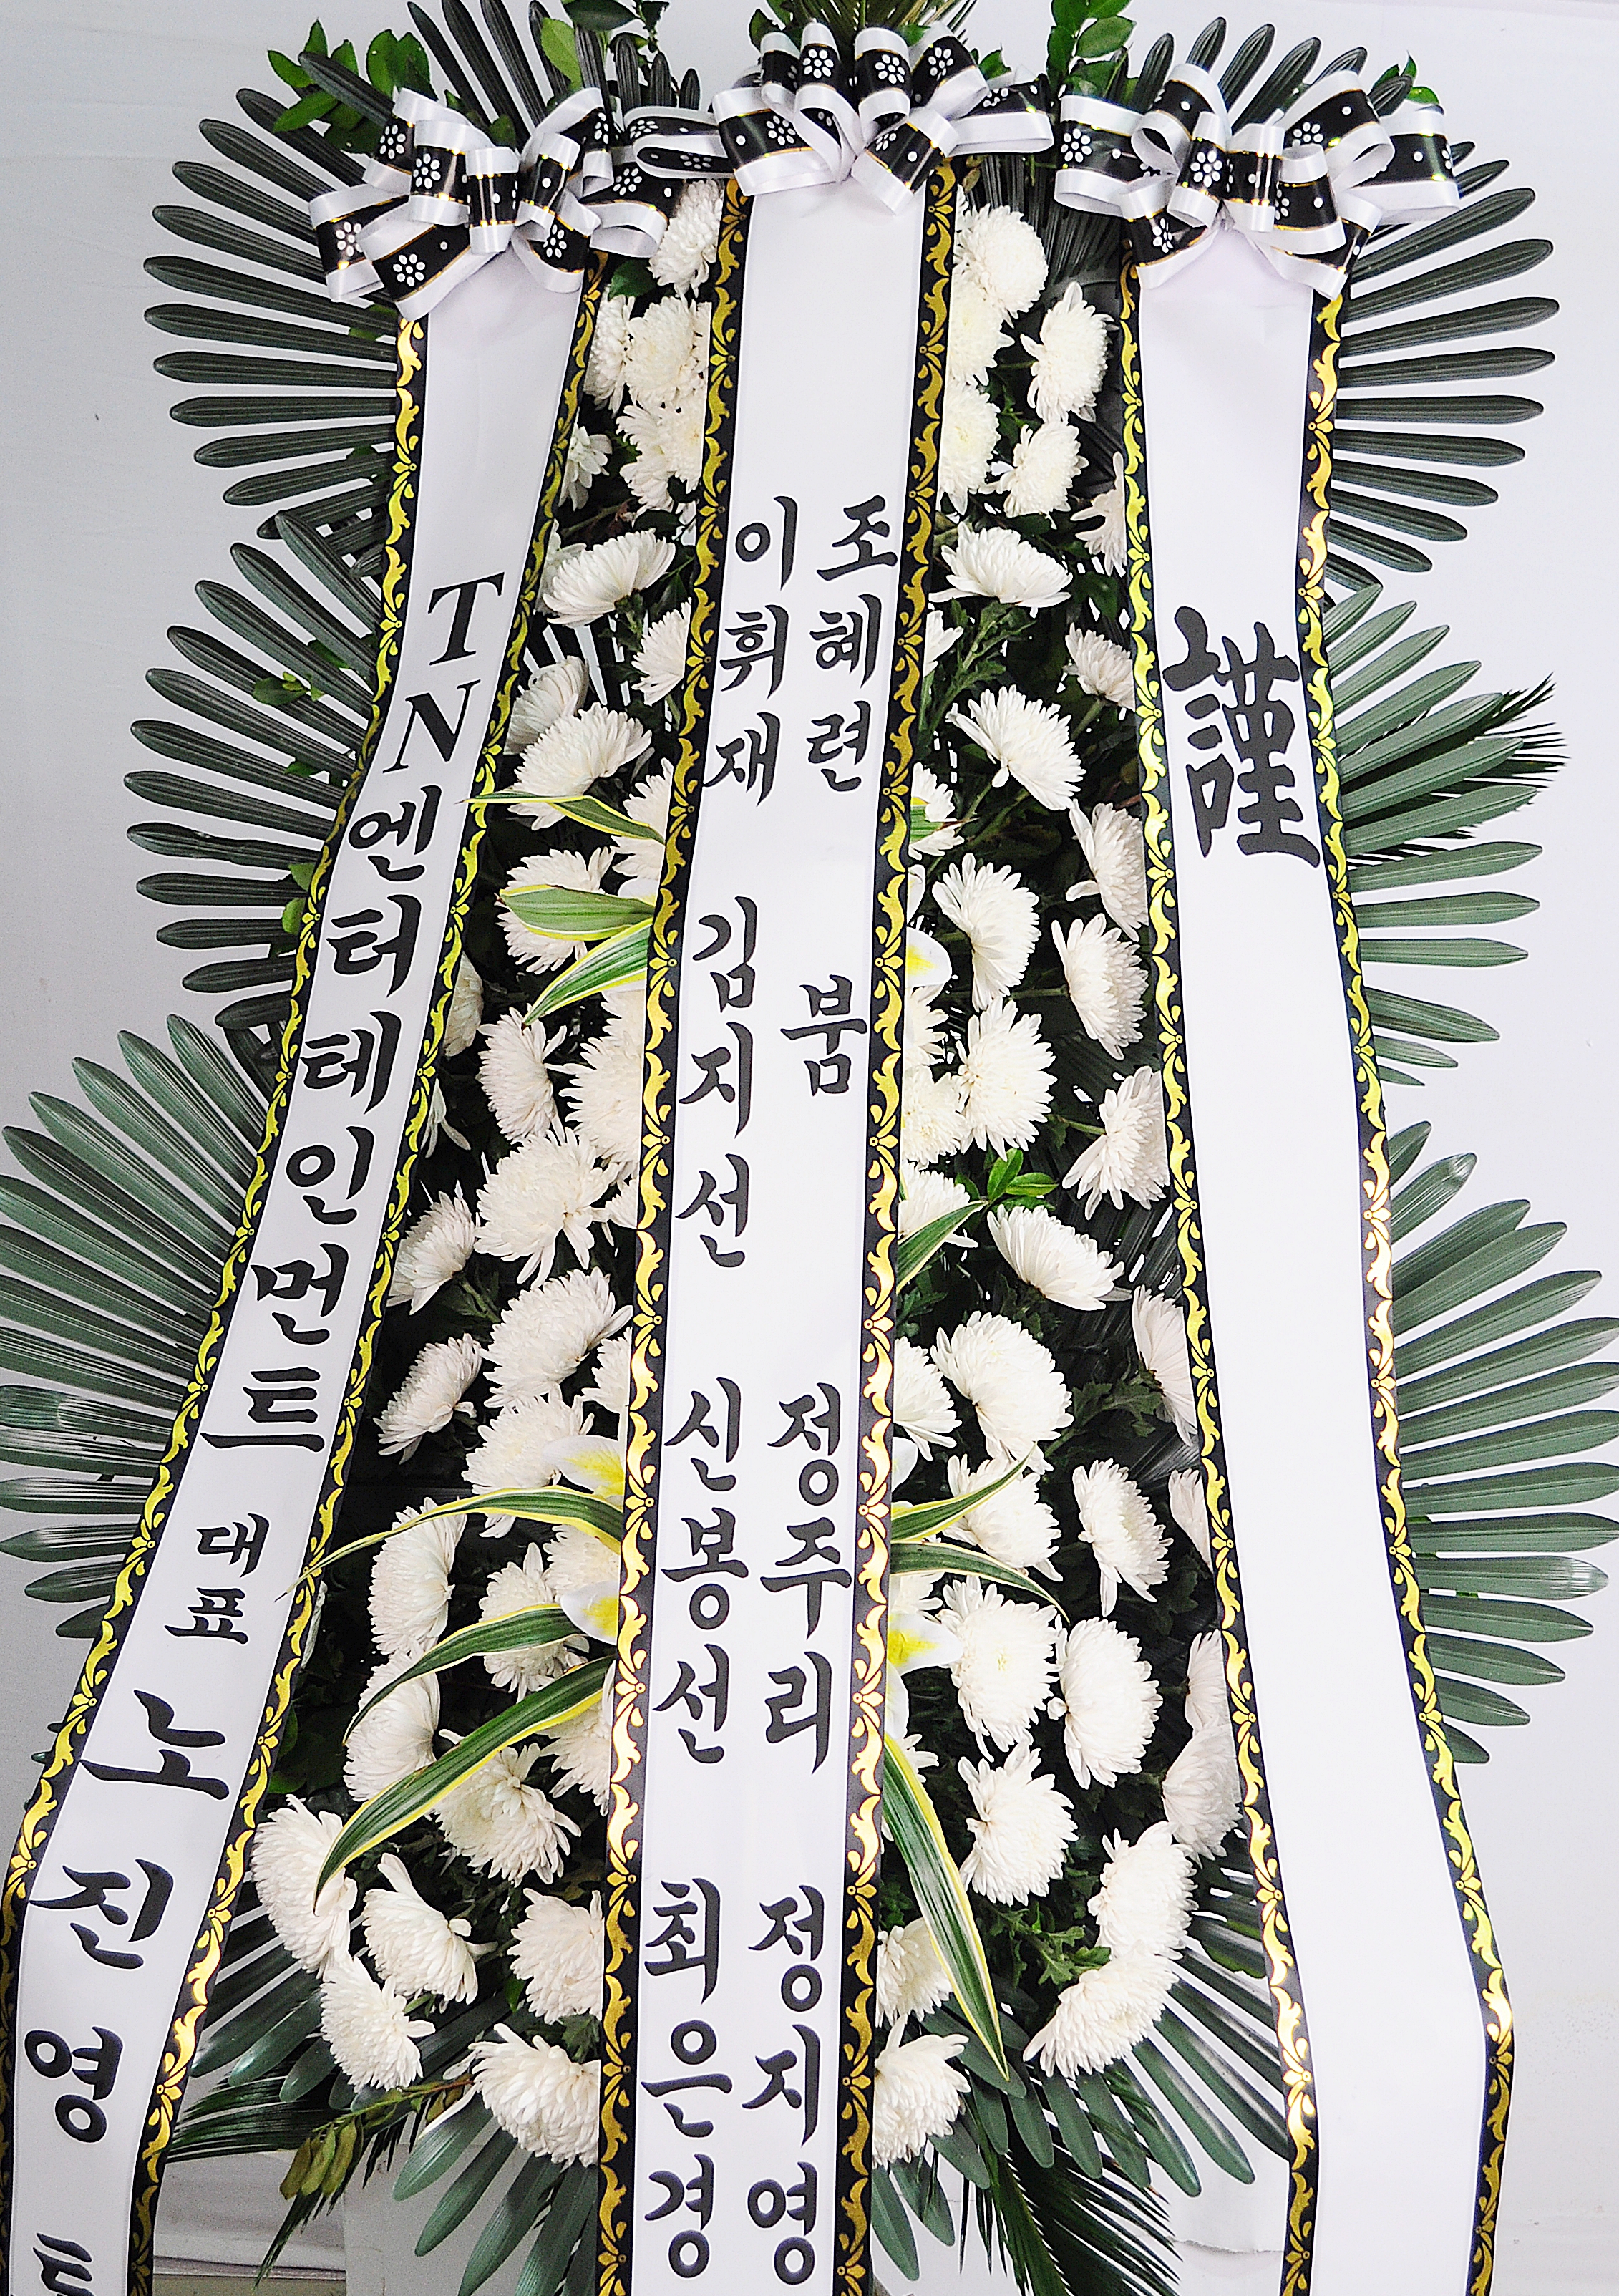 謹
조혜련 붐 정주리 정지영
이휘재 김지선 신봉선 최은경
TN엔터테인먼트 대표 노진영